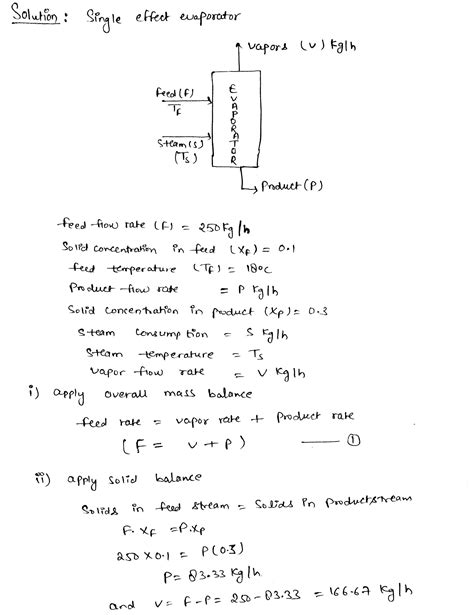 Solution : Single effect evaporator
vapors (V) Kg/h
Feed (F)
TF
EVAPORATOR
Steam (S)
(Ts)
Product (P)
feed flow rate (F) = 250 Kg/h
Solid concentration in feed (XF) = 0.1
feed temperature (TF) = 18°C
Product flow rate = P Kg/h
Solid concentration in product (XP) = 0.3
Steam Consumption = S Kg/h
Steam temperature = Ts
Vapor flow rate = V Kg/h
i) apply overall mass balance
feed rate = vapor rate + Product rate
(F = V + P) — ①
ii) apply solid balance
Solids in feed stream = Solids in product stream
F. XF = P.XP
250 X 0.1 = P (0.3)
P = 83.33 Kg/h
and V = F - P = 250 - 83.33 = 166.67 Kg/h